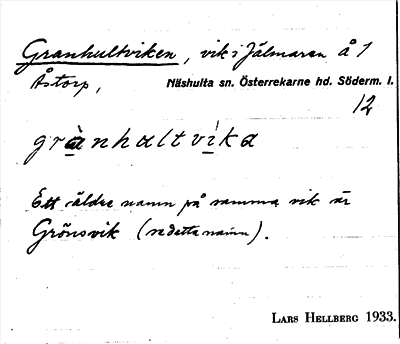 Granhultviken, vik i Jälmaren å 1
Åstorp,
Näshulta sn. Österrekarne hd. Söderm. l.
12
grànhaltvìka
Ett äldre namn på samma vik är
Grönsvik (se detta namn).
LARS HELLBERG 1933.